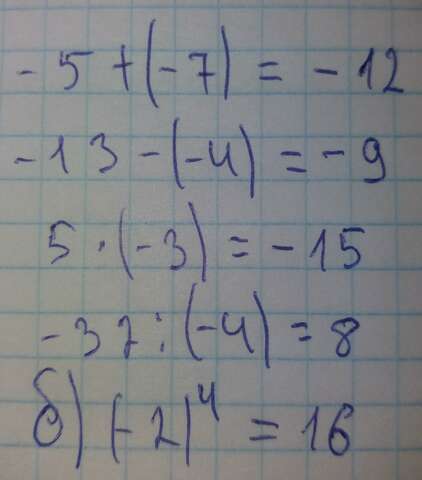 - 5 + (- 7) = - 12
- 13 - (- 4) = - 9
5 · (- 3) = - 15
- 32 : (- 4) = 8
б) (- 2)⁴ = 16